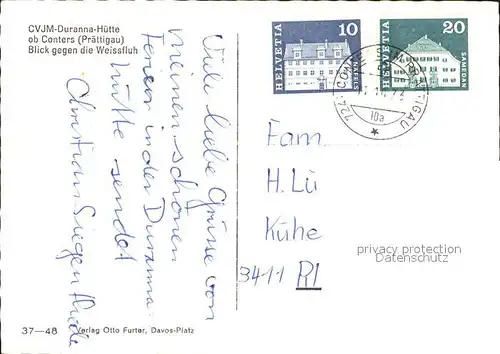 CVJM-Duranna-Hütte
ob Conters (Prättigau)
Blick gegen die Weissfluh
Viele liebe Grüsse von
meinen schönen
Ferien in der Duranna-
hütte sendet
Christian Siegenthaler
37—48
Verlag Otto Furter, Davos-Platz
HELVETIA
10
NÄFELS
HELVETIA
20
SAMEDAN
10a
Fam.
H. Lü
Kühe
3411 RI
privacy protection
Datenschutz